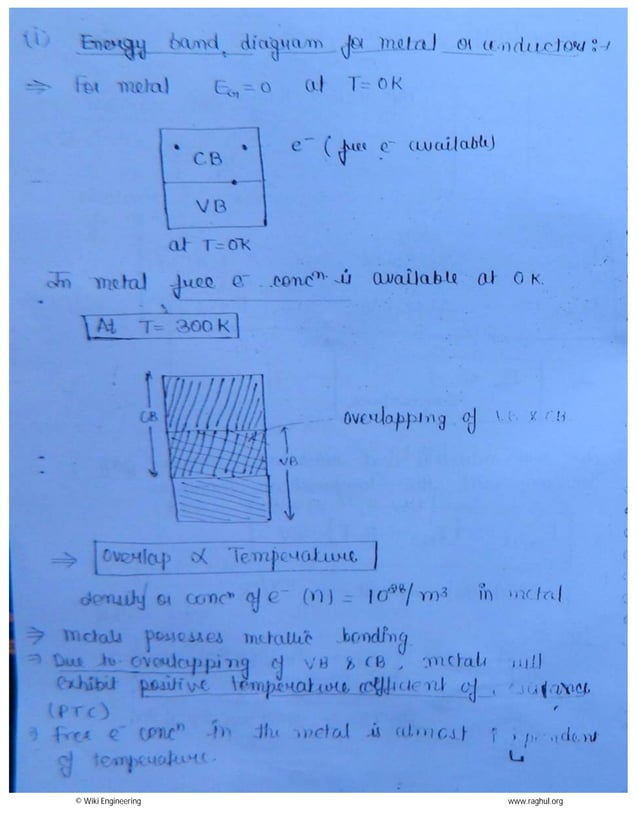 (i) Energy band diagram for metal or conductors :→
⇒ For metal EG = 0 at T = 0K
CB
e⁻ (free e⁻ available)
VB
at T=0K
In metal free e⁻ concⁿ is available at 0 K.
At T= 300K
CB
overlapping of VB & CB
VB
⇒ Overlap ∝ Temperature
density or concⁿ of e⁻ (n) = 10²⁸/m³ in metal
⇒ metals possesses metallic bonding
⇒ Due to overlapping of VB & CB, metals will
exhibit positive temperature cofficient of
(PTC)
⇒ free e⁻ concⁿ in the metal is almost
of temperature.
© Wiki Engineering www.raghul.org